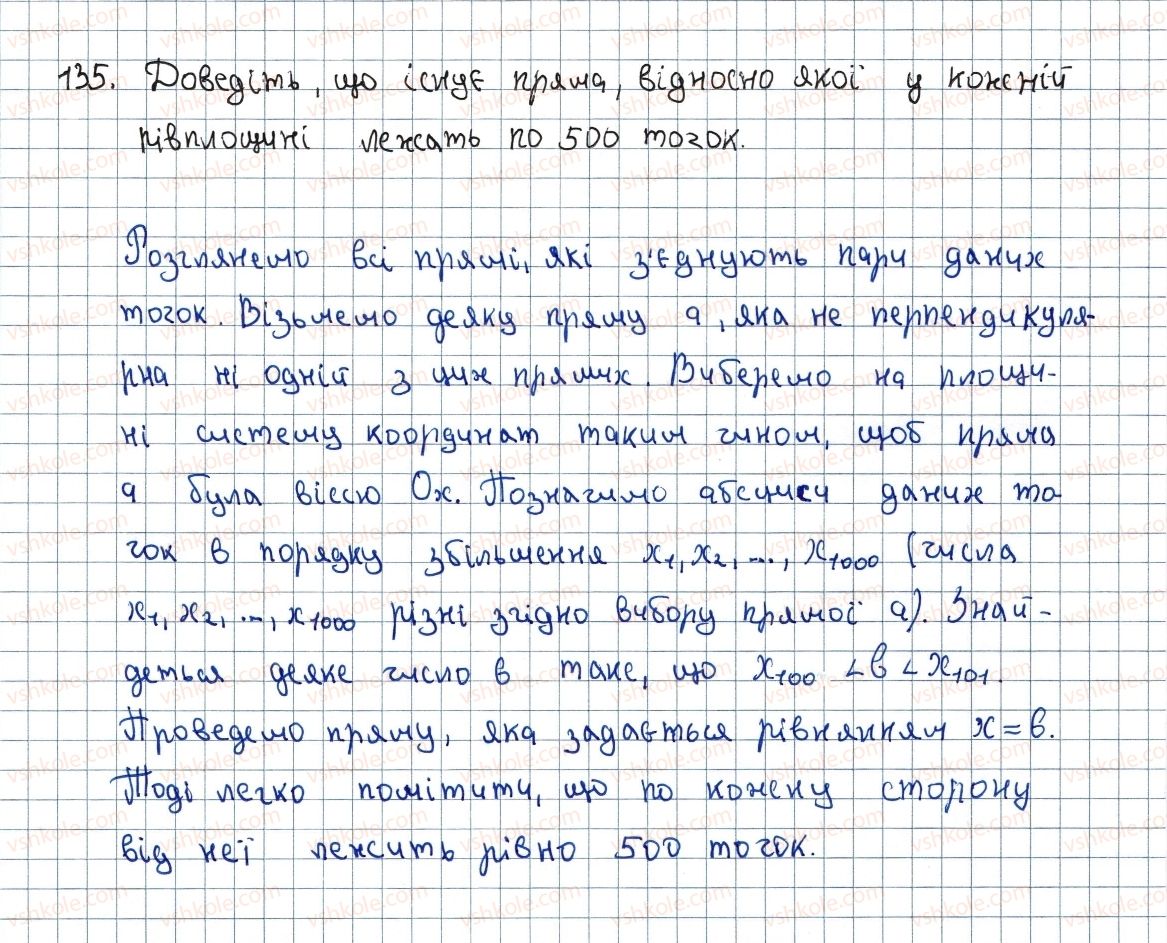 135. Доведіть, що існує пряма, відносно якої у кожній
півплощині лежать по 500 точок.
Розглянемо всі прямі, які з'єднують пари даних
точок. Візьмемо деяку пряму a, яка не перпендикуля-
рна ні одній з цих прямих. Виберемо на площи-
ні систему координат таким чином, щоб пряма
a була віссю Ox. Позначимо абсциси даних то
чок в порядку збільшення x₁, x₂, ..., x₁₀₀₀ (числа
x₁, x₂, ..., x₁₀₀₀ різні згідно вибору прямої a). Знай-
деться деяке число в таке, що x₁₀₀ < в < x₁₀₁.
Проведемо пряму, яка задається рівнянням x = в.
Тоді легко помітити, що по кожну сторону
від неї лежить рівно 500 точок.